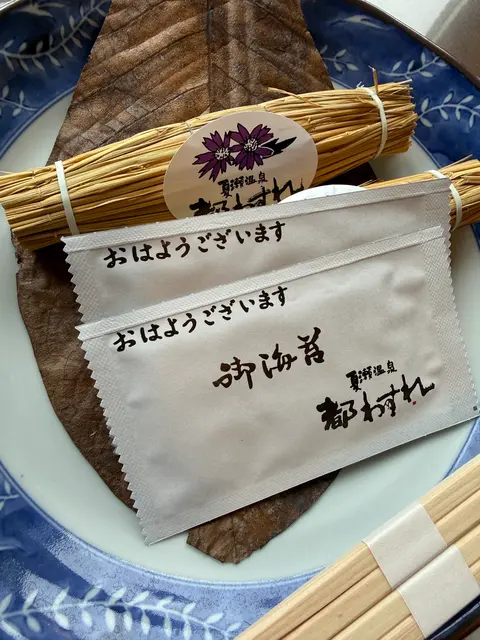 夏瀬温泉
都わすれ
おはようございます
おはようございます
御海苔
夏瀬温泉
都わすれ